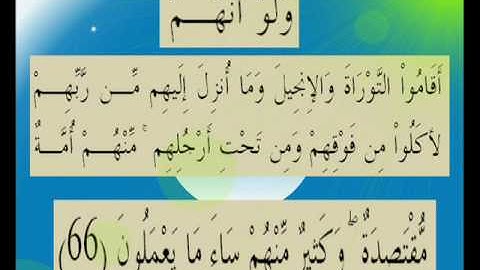 ولو أنهم
أَقَامُواْ التَّوْرَاةَ وَالإِنجِيلَ وَمَا أُنزِلَ إِلَيهِم مِّن رَّبِّهِمْ
لأكَلُواْ مِن فَوْقِهِمْ وَمِن تَحْتِ أَرْجُلِهِم ۚ مِّنْهُمْ أُمَّةٌ
مُّقْتَصِدَةٌ ۖ وَكَثِيرٌ مِّنْهُمْ سَاءَ مَا يَعْمَلُونَ (66)